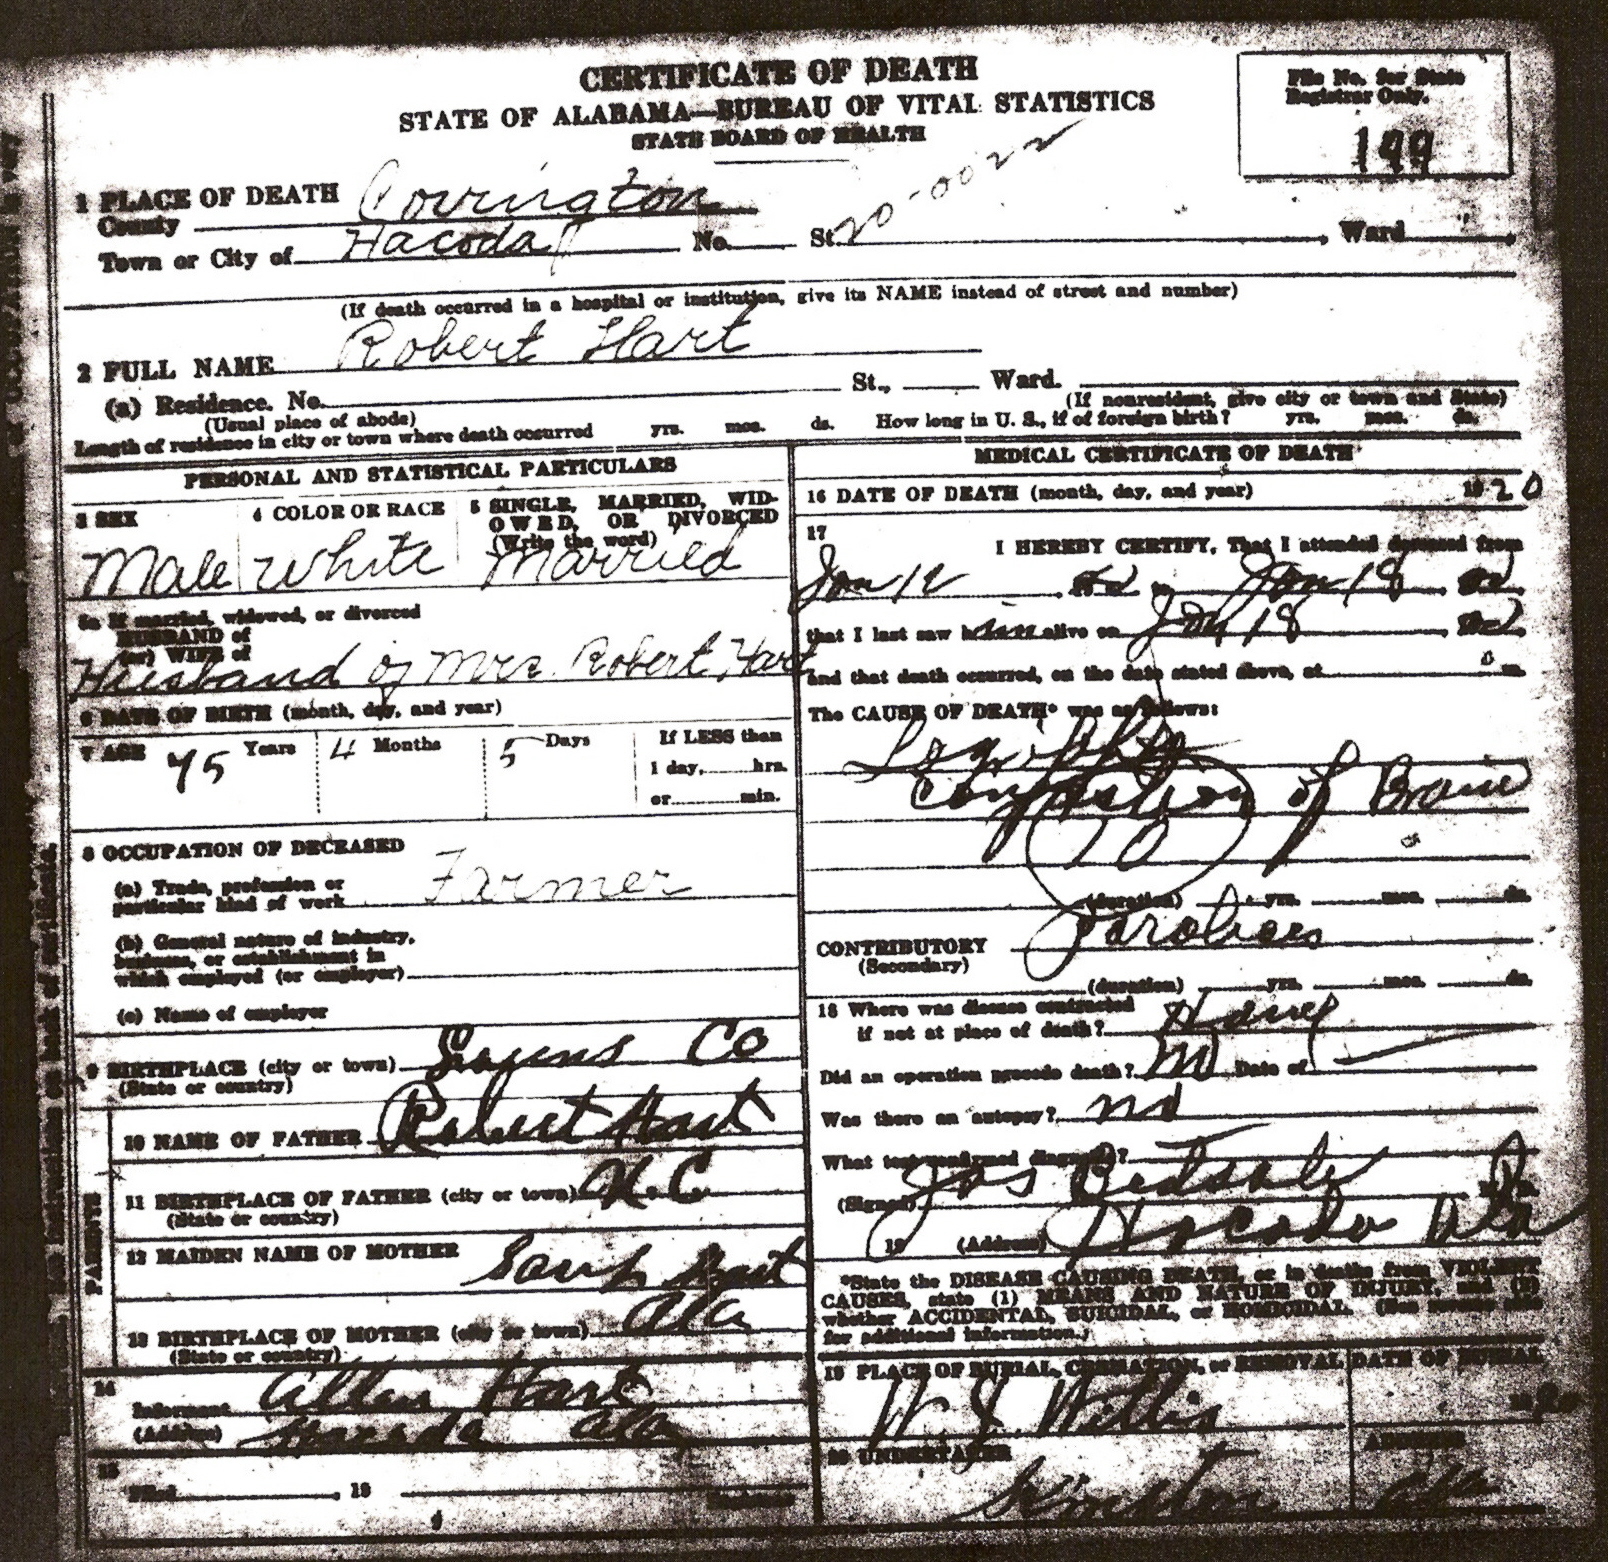 CERTIFICATE OF DEATH
STATE OF ALABAMA—BUREAU OF VITAL STATISTICS
STATE BOARD OF HEALTH
File No. for State
Registrar Only.
199
20-0022
1 PLACE OF DEATH
County Covington
Town or City of Hacoda No. St. , Ward ,
(If death occurred in a hospital or institution, give its NAME instead of street and number)
2 FULL NAME Robert Hart
(a) Residence. No. St., Ward.
(Usual place of abode) (If nonresident, give city or town and State)
Length of residence in city or town where death occurred yrs. mos. ds. How long in U. S., if of foreign birth? yrs. mos. ds.
PERSONAL AND STATISTICAL PARTICULARS
3 SEX 4 COLOR OR RACE 5 SINGLE, MARRIED, WID-
OWED, OR DIVORCED
(Write the word)
Male White Married
5a If married, widowed, or divorced
HUSBAND of
(or) WIFE of
Husband of Mrs. Robert Hart
6 DATE OF BIRTH (month, day, and year)
7 AGE 75 Years 4 Months 5 Days If LESS than
1 day, hrs.
or min.
8 OCCUPATION OF DECEASED
(a) Trade, profession or
particular kind of work Farmer
(b) General nature of industry,
business, or establishment in
which employed (or employer)
(c) Name of employer
9 BIRTHPLACE (city or town) Co
(State or country)
PARENTS
10 NAME OF FATHER Robert Hart
11 BIRTHPLACE OF FATHER (city or town) N.C
(State or country)
12 MAIDEN NAME OF MOTHER Hart
13 BIRTHPLACE OF MOTHER (city or town) Ala
(State or country)
14
Informant Allen Hart
(Address) Hacoda Ala
15
Filed , 19 Registrar
MEDICAL CERTIFICATE OF DEATH
16 DATE OF DEATH (month, day, and year) 1920
17
I HEREBY CERTIFY, That I attended deceased from
Jan 12 , to Jan 18
that I last saw him alive on Jan 18 ,
and that death occurred, on the date stated above, at m.
The CAUSE OF DEATH* was as follows:
of Brain
(duration) yrs. mos. ds.
CONTRIBUTORY
(Secondary)
(duration) yrs. mos. ds.
18 Where was disease contracted
if not at place of death? Home
Did an operation precede death? No Date of
Was there an autopsy? no
What test confirmed diagnosis?
(Signed) Jas
19 (Address) Hacoda Ala
*State the DISEASE CAUSING DEATH, or in deaths from VIOLENT
CAUSES, state (1) MEANS AND NATURE OF INJURY, and (2)
whether ACCIDENTAL, SUICIDAL, or HOMICIDAL. (See reverse side
for additional information.)
19 PLACE OF BURIAL, CREMATION, or REMOVAL DATE OF BURIAL
W. J. Willis
20 UNDERTAKER ADDRESS
Kinston Ala